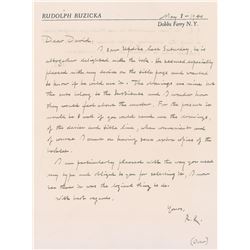 RUDOLPH RUZICKA
May 8 - 1944
Dobbs Ferry N.Y.
Dear David:
I saw Updike last Saturday; he is
altogether delighted with the book. He seemed especially
pleased with my device on the title page and wanted
to know if he could use it. The drawings are mine but
the cuts belong to the Institute and I wonder how
they would feel about the matter. For the present it
would be well if you could send me the drawings,
of the device and title line, when convenient and
of course, I am having some extra copies of the
I am particularly pleased with the way you used
my type and obliged to you for selecting it, I now
see that it was the logical thing to do.
With best regards,
Yours,
R. R.
(Over)